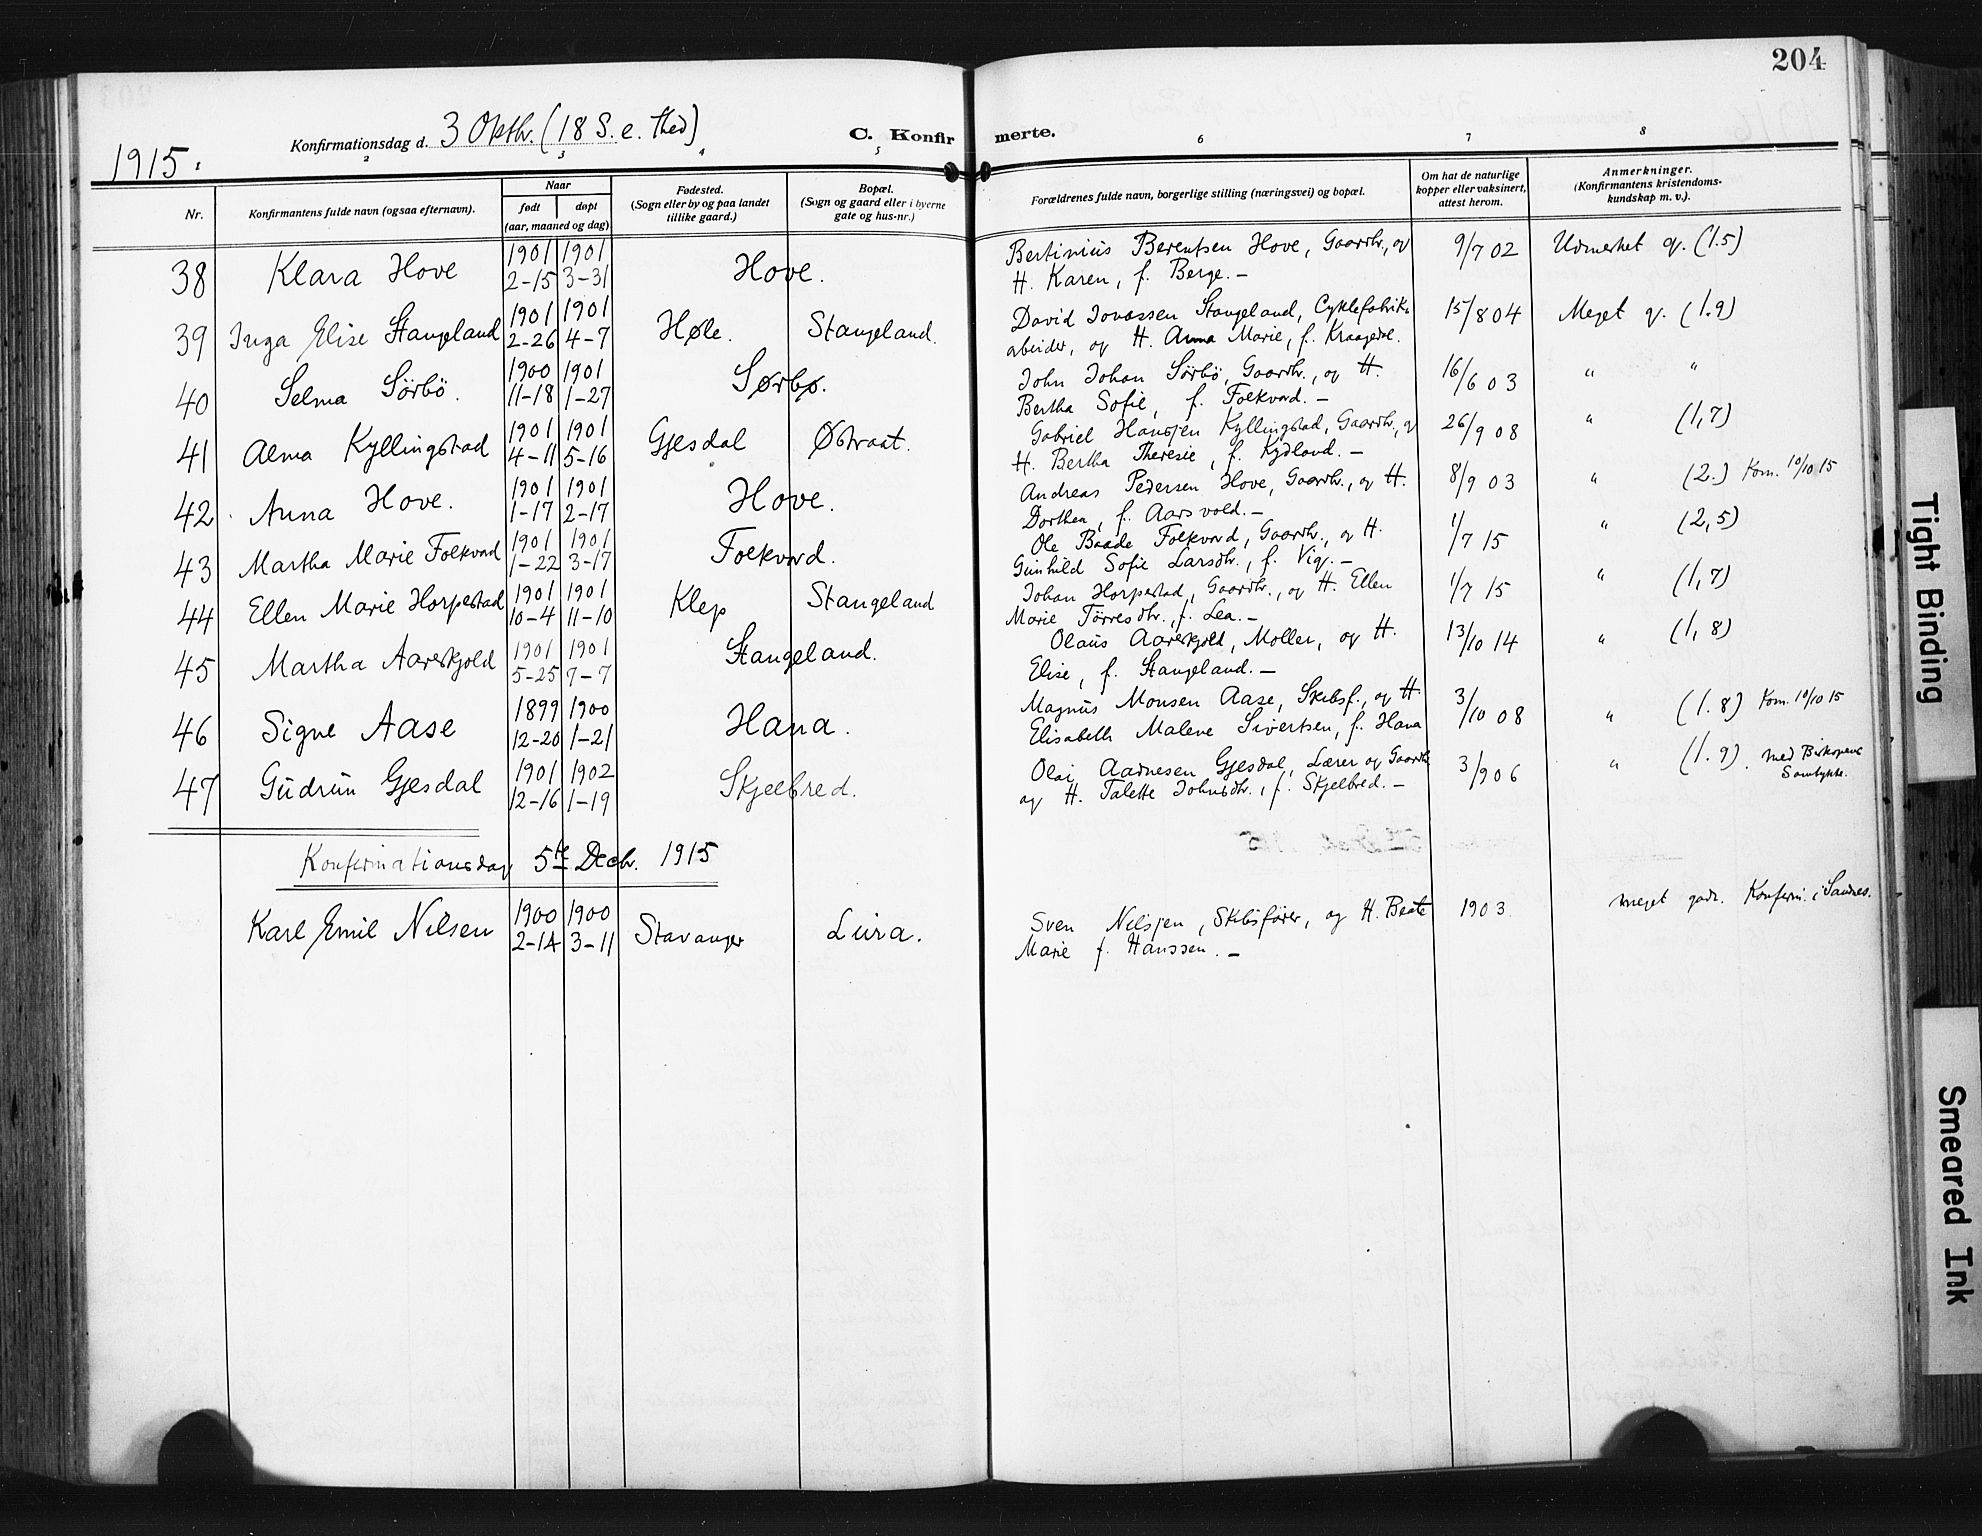 204
1915.
Konfirmationsdag d. 3 Oktbr. (18 S. e. Thed)
C. Konfirmerte.
2 3 4 5 6 7 8
Nr.
Konfirmantens fulde navn (ogsaa efternavn).
Naar
født døpt
(aar, maaned og dag)
Fødested.
(Sogn eller by og paa landet
tillike gaard.)
Bopæl.
(Sogn og gaard eller i byerne
gate og hus-nr.)
Forældrenes fulde navn, borgerlige stilling (næringsvei) og bopæl.
Om hat de naturlige
kopper eller vaksinert,
attest herom.
Anmerkninger.
(Konfirmantens kristendoms-
kundskap m. v.).
38 Klara Hove 1901 2-15 1901 3-31 Hove.
Bertinius Berentsen Hove, Gaardbr., og 9/7 02 Udmerket g. (1.5)
H. Karen, f. Berge. –
39 Inga Elise Stangeland 1901 2-26 1901 4-7 Høle. Stangeland.
David Jonassen Stangeland, Cyklefabrik- 15/8 04 Meget g. (1.9)
arbeider, og H. Anna Marie, f. Kraagedal.
40 Selma Sörbö. 1900 11-18 1901 1-27 Sørbø.
John Johan Sörbö, Gaardbr., og H. 16/6 03 " "
Bertha Sofie, f. Folkvord. –
41 Alma Kyllingstad 1901 4-11 1901 5-16 Gjesdal Østraat.
Gabriel Hansjen Kyllingstad, Gaardbr., og 26/9 08 " (1,7)
H. Bertha Theresie, f. Kydland. –
42 Anna Hove. 1901 1-17 1901 2-17 Hove.
Andreas Pedersen Hove, Gaardbr., og H. 8/9 03 " (2.) Kom. 10/10 15
Dorthea, f. Aarsvold. –
43 Martha Marie Folkvord 1901 1-22 1901 3-17 Folkvord.
Ole Baade Folkvord, Gaardbr., og H. 1/7 15 " (2,5)
Gunhild Sofie Larsdtr., f. Vig. –
44 Ellen Marie Horpestad 1901 10-4 1901 11-10 Klep Stangeland
Johan Horpestad, Gaardbr., og H. Ellen 1/7 15 " (1,7)
Marie Törresdtr., f. Lea. –
45 Martha Aareskjold 1901 5-25 1901 7-7 Stangeland.
Olaus Aareskjold, Møller, og H. 13/10 14 " (1,8)
Elise, f. Stangeland. –
46 Signe Aase 1899 12-20 1900 1-21 Hana.
Magnus Monsen Aase, Skibsf., og H. 3/10 08 " (1.8) Kom. 10/10 15
Elisabeth Malene Sivertsen, f. Hana
47 Gudrun Gjesdal 1901 12-16 1902 1-19 Skjelbred.
Olai Aadnesen Gjesdal, Lærer og Gaardbr. 3/9 06 " (1.9). med Biskopens
Samtykke.
og H. Talette Johnsdtr., f. Skjelbred. –
Konfirmationsdag 5te Decbr. 1915
Karl Emil Nilsen 1900 2-14 1900 3-11 Stavanger Lura.
Sven Nilsjen, Skibsfører, og H. Beate 1903 meget godt. Konfirm. i Sandnes.
Marie f. Hanssen. –
Tight Binding
Smeared Ink